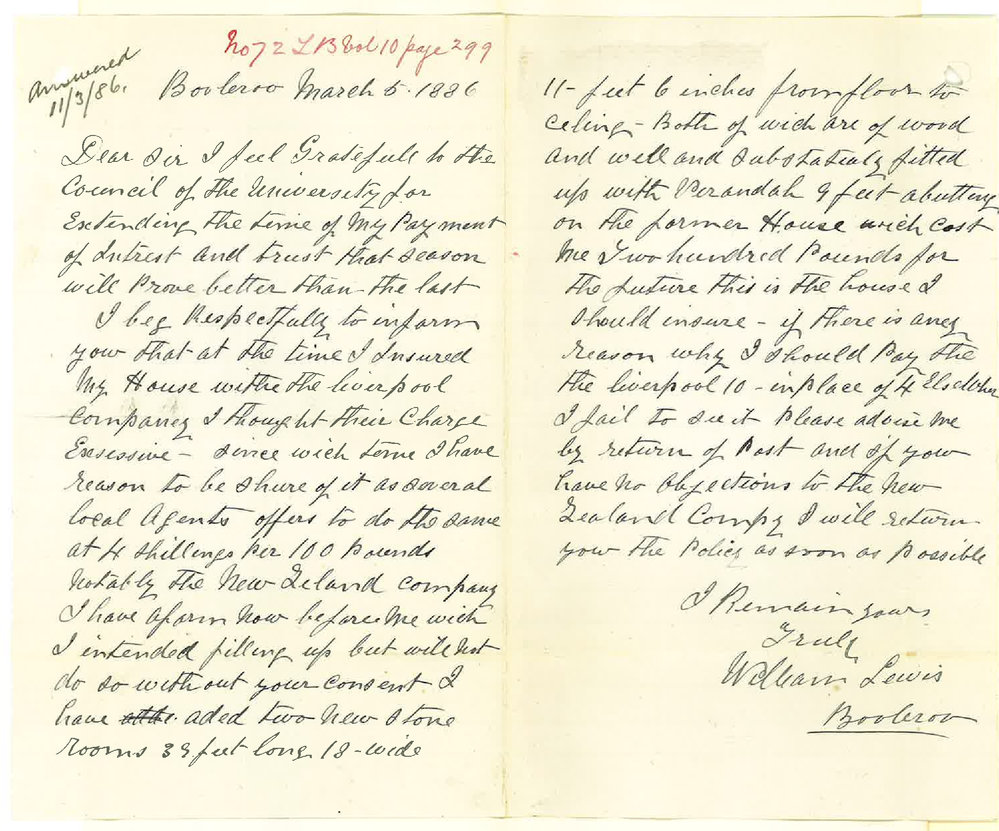 No 72 LB Vol 10 page 299
Answered
11/3/86.
Booleroo March 5. 1886
Dear Sir I feel Gratefull to the
Council of the University for
Extending the time of My Payment
of Intrest and trust that season
will Prove better than the last
I beg Respectfully to inform
yow that at the time I Insured
My House withe the liverpool
Companey I thought their Charge
Exsessive - since wich time I have
reason to be shure of it as several
local Agents offers to do the same
at 4 shillings Per 100 Pounds
Notably the New Zeland Company
I have aform Now before Me wich
I intended filling up but will Not
do so without your Consent I
have aded two New stone
rooms 39 feet long 18 - wide
11 - feet 6 inches from floor to
Celing - Both of wich are of wood
and well and substatialy fitted
up with Verandah 9 feet abutting
on the former House wich Cost
Me Two hundred Pounds for
the future this is the house I
should insure - if there is aney
reason why I should Pay the
the liverpool 10 - inplace of 4 Elsewher
I fail to see it Please advise Me
by return of Post and if yow
have No Objections to the New
Zealand Compy I will return
yow the Policy as soon as Possible
I Remain yours
Truly
William Lewis
Booleroo